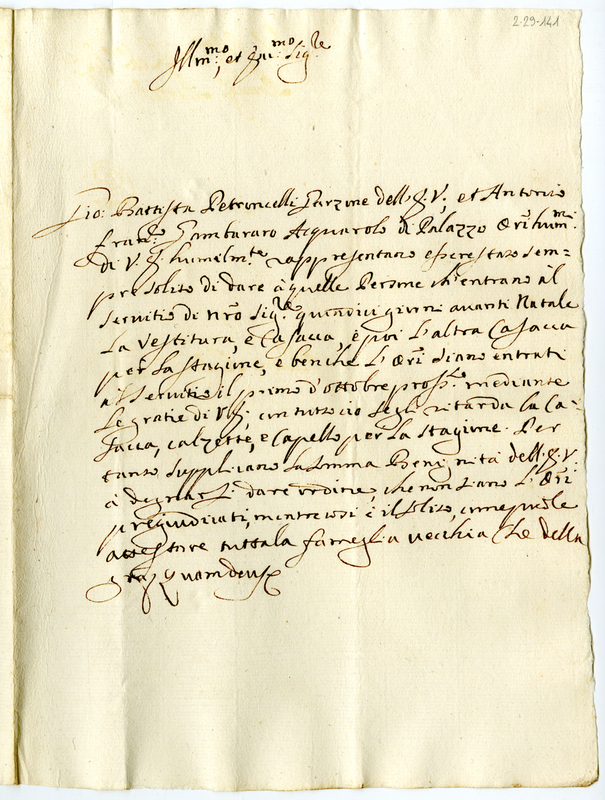 2-29-141
Ill.mo, et Ecc.mo Sig.re
Gio: Battista Petroncelli Garzone dell' E.V., et Antonio
Gambararo Acquarolo di Palazzo Ori hum.mi
di V. E. humilm.te rappresentano essere stato sem=
pre solito di dare à quelle Persone ch'entrano àl
servitio di nro Sig.re quindici giorni avanti Natale
la vestitura, e Casacca, e poi l'altra Casacca
per la stagione, e benche l' Ori siano entrati
àl servitio il primo d'ottobre pross.o mediante
le gratie di V.E., con tutto ciò se gli ritarda la Ca=
sacca, calzette, e Capello per la stagione. Per
tanto supplicano la somma Benignità dell' E.V.
à degnarsi dare ordine, che non siano l' Ori
pregiudicati, mentre così è il solito, come puole
attestare tutta la fameglia vecchia Che della
gra; Quam Deus